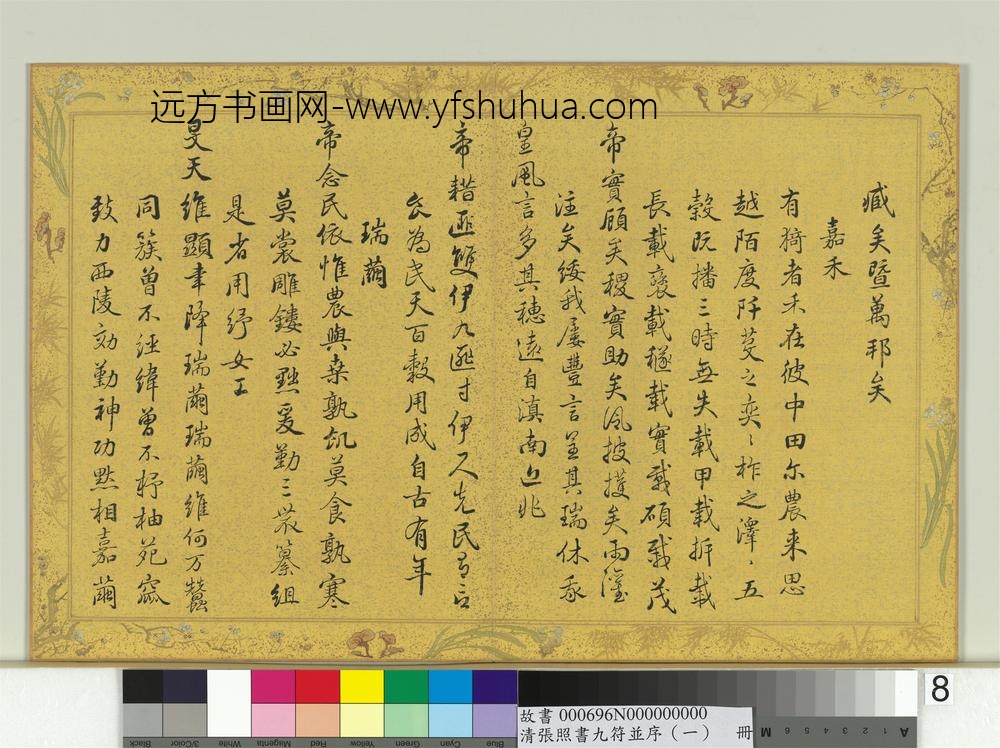 远方书画网-www.yfshuhua.com
臧矣暨萬邦矣
嘉禾
有猗者禾在彼中田尔農来思
越陌度阡芟之奕〻柞之澤〻五
穀既播三時無失載甲載拆載
長載襃載穟載實載碩載茂
帝實顧矣稷實助矣風披擭矣雨瀅
注矣綏我屢豐言呈其瑞休哉
皇風言多其穗遠自滇南迄兆
帝耤匪雙伊九匪寸伊尺先民有言
食為民天百穀用成自古有年
瑞繭
帝念民依惟農與桒孰飢莫食孰寒
莫裳雕鏤必黜爰勤三農纂組
是省用紓女工
旻天維顯聿降瑞繭瑞繭維何万蠶
同簇曽不經緯曽不杼柚苑窳
致力西陵効勤神功黙相嘉繭
8
故書 000696N000000000
清張照書九符並序（一） 冊
Black
3/Color
White
Magenta
Red
Yellow
Green
Cyan
Blue
A 1 2 3 4 5 6 M